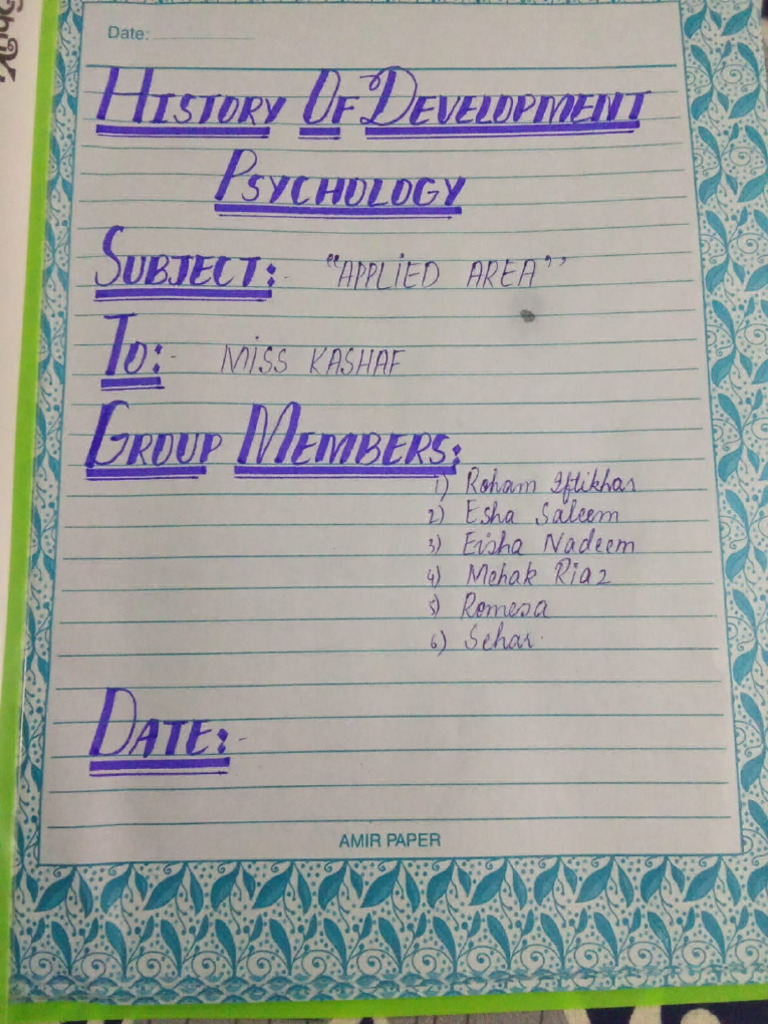 Date:
HISTORY OF DEVELOPMENT
PSYCHOLOGY
SUBJECT:- "APPLIED AREA"
TO:- MISS KASHAF
GROUP MEMBERS:
1) Roham Iftikhar
2) Esha Saleem
3) Eisha Nadeem
4) Mehak Riaz
5) Romesa
6) Sehar.
DATE:-
AMIR PAPER